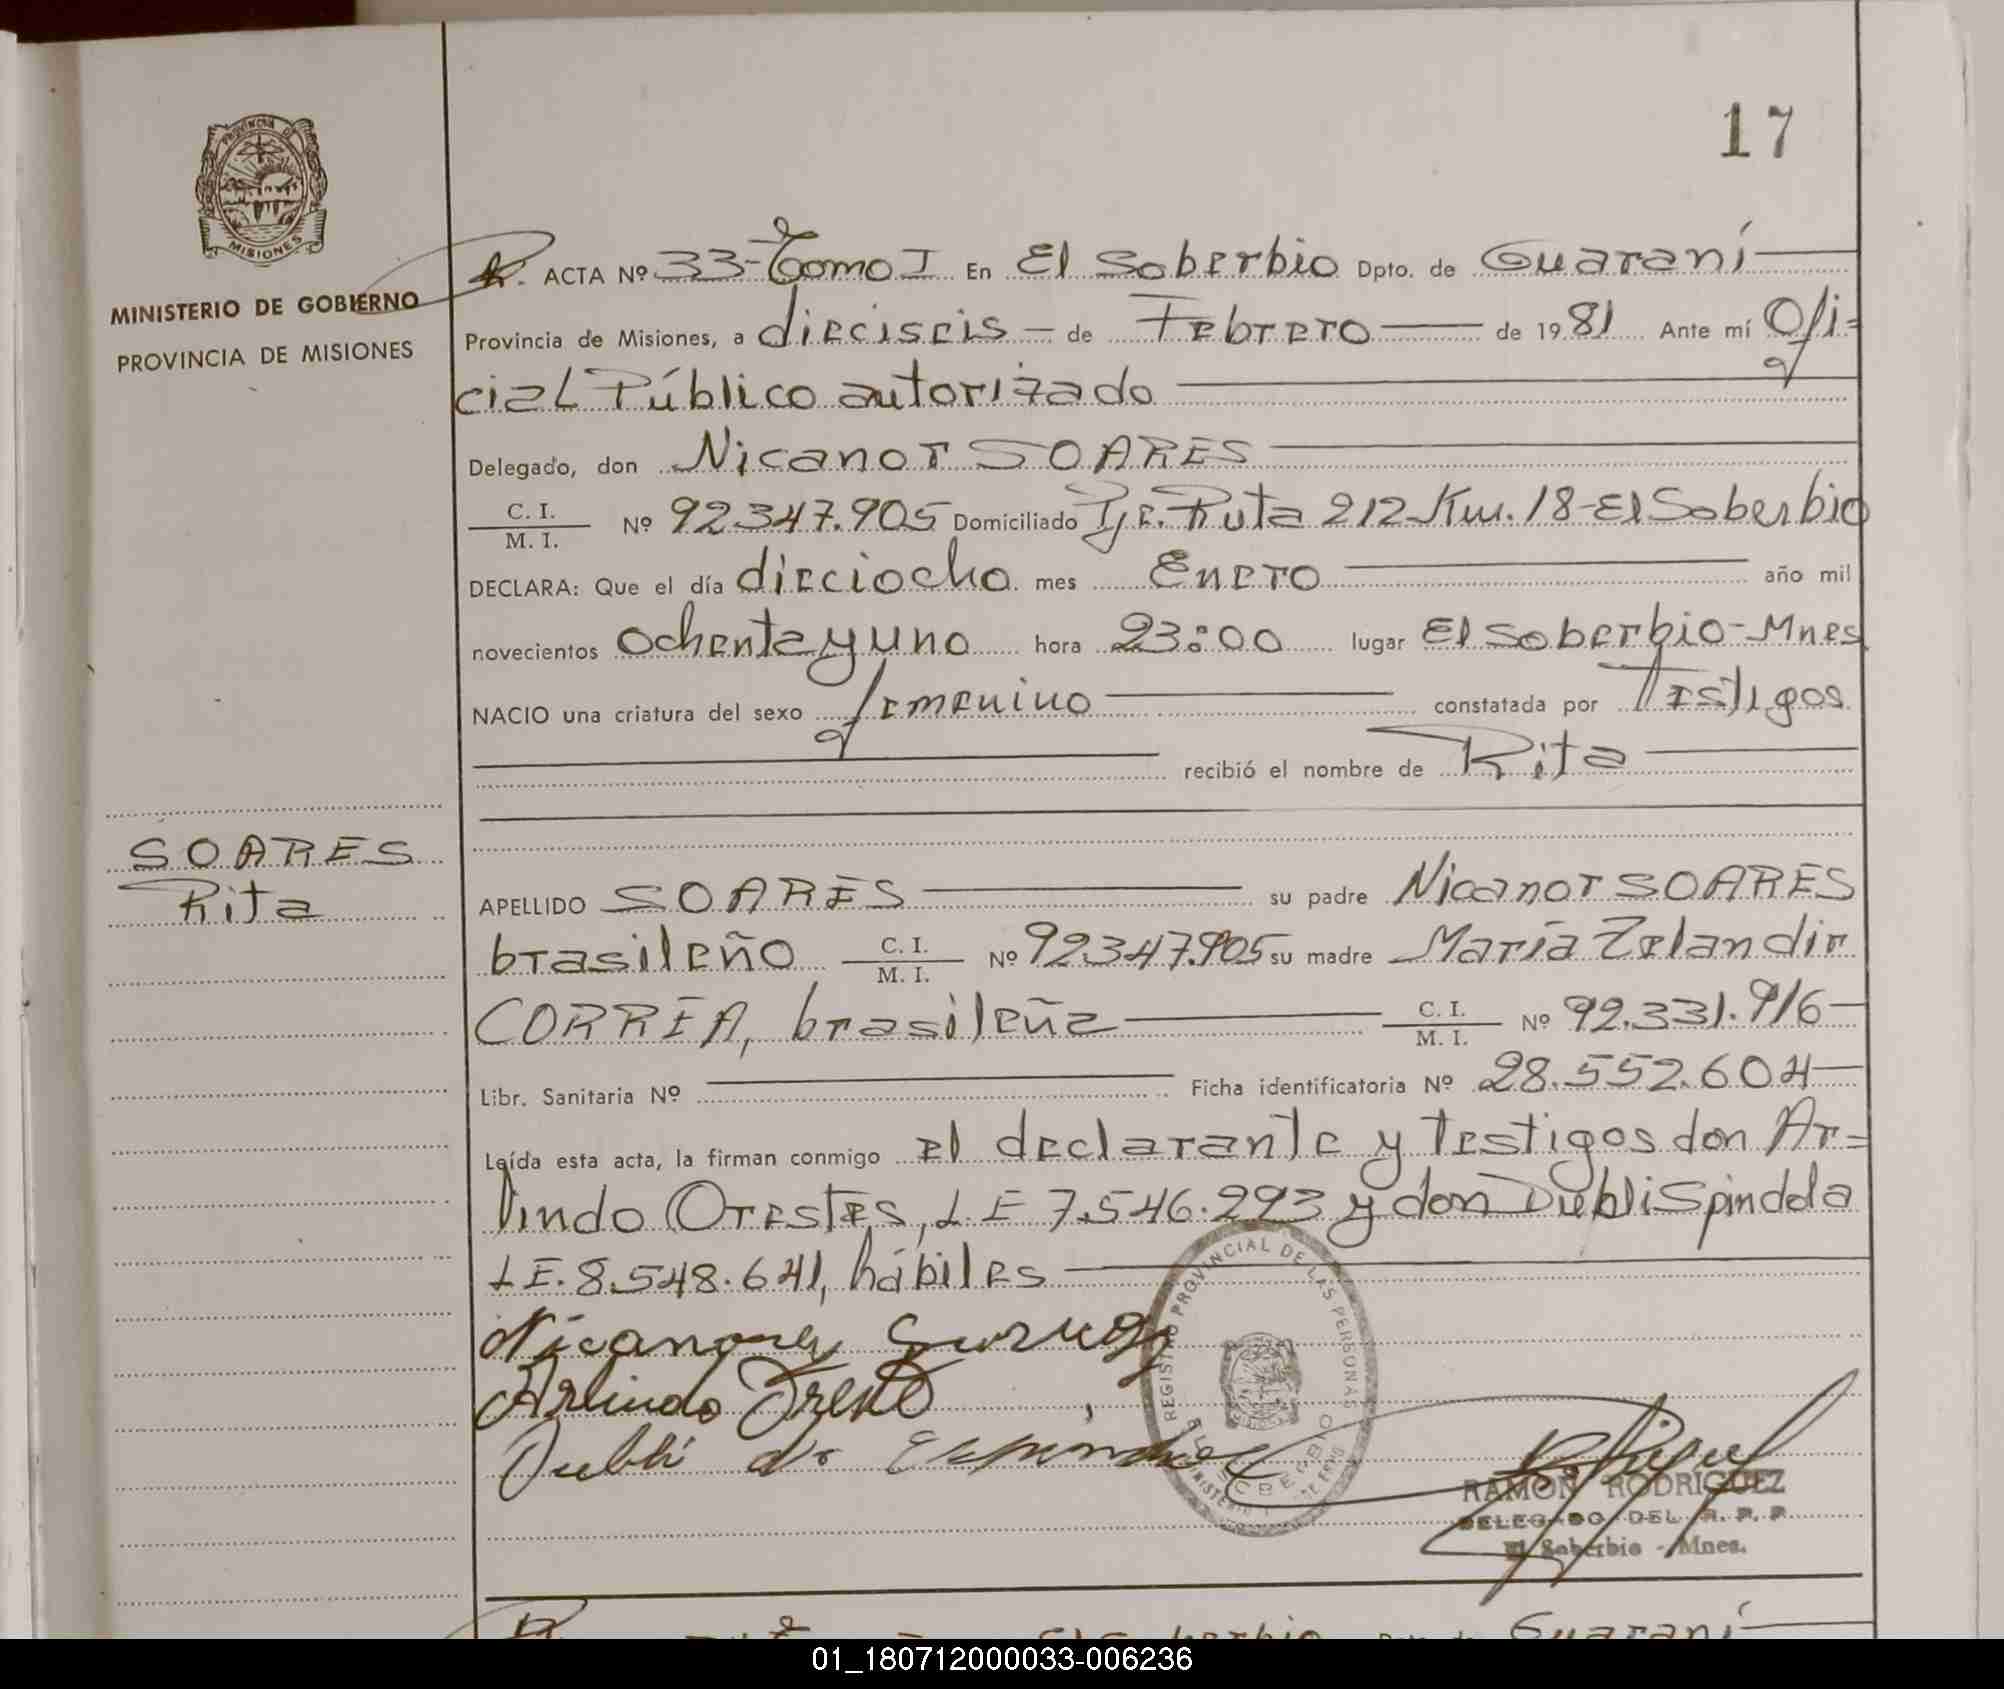 17
PROVINCIA DE
MISIONES
MINISTERIO DE GOBIERNO
PROVINCIA DE MISIONES
R. ACTA Nº 33-Tomo I En El Soberbio Dpto. de Guaraní
Provincia de Misiones, a dieciseis - de Febrero de 1981 Ante mí Ofi=
cial Público autorizado
Delegado, don Nicanor SOARES
C. I.
M. I. Nº 92.347.905 Domiciliado Pje. Ruta 212 Km. 18-El Soberbio
DECLARA: Que el día dieciocho mes Enero año mil
novecientos ochenta y uno hora 23:00 lugar El Soberbio-Mnes
NACIO una criatura del sexo femenino constatada por Testigos
recibió el nombre de Rita
SOARES
Rita
APELLIDO SOARES su padre Nicanor SOARES
brasileño C. I. M. I. Nº 92.347.905 su madre María Zelandir
CORREA, brasileña C. I. M. I. Nº 92.331.916
Libr. Sanitaria Nº Ficha identificatoria Nº 28.552.604
Leída esta acta, la firman conmigo el declarante y testigos don Ar=
lindo Orestes, L.E 7.546.293 y don Dubli Spindola
L.E. 8.548.641, hábiles
Arlindo
Dubli
REGISTRO PROVINCIAL DE LAS PERSONAS
RAMON RODRIGUEZ
DELEGADO DEL R. P. P.
El Soberbio - Mnes.
Guaraní
01_180712000033-006236